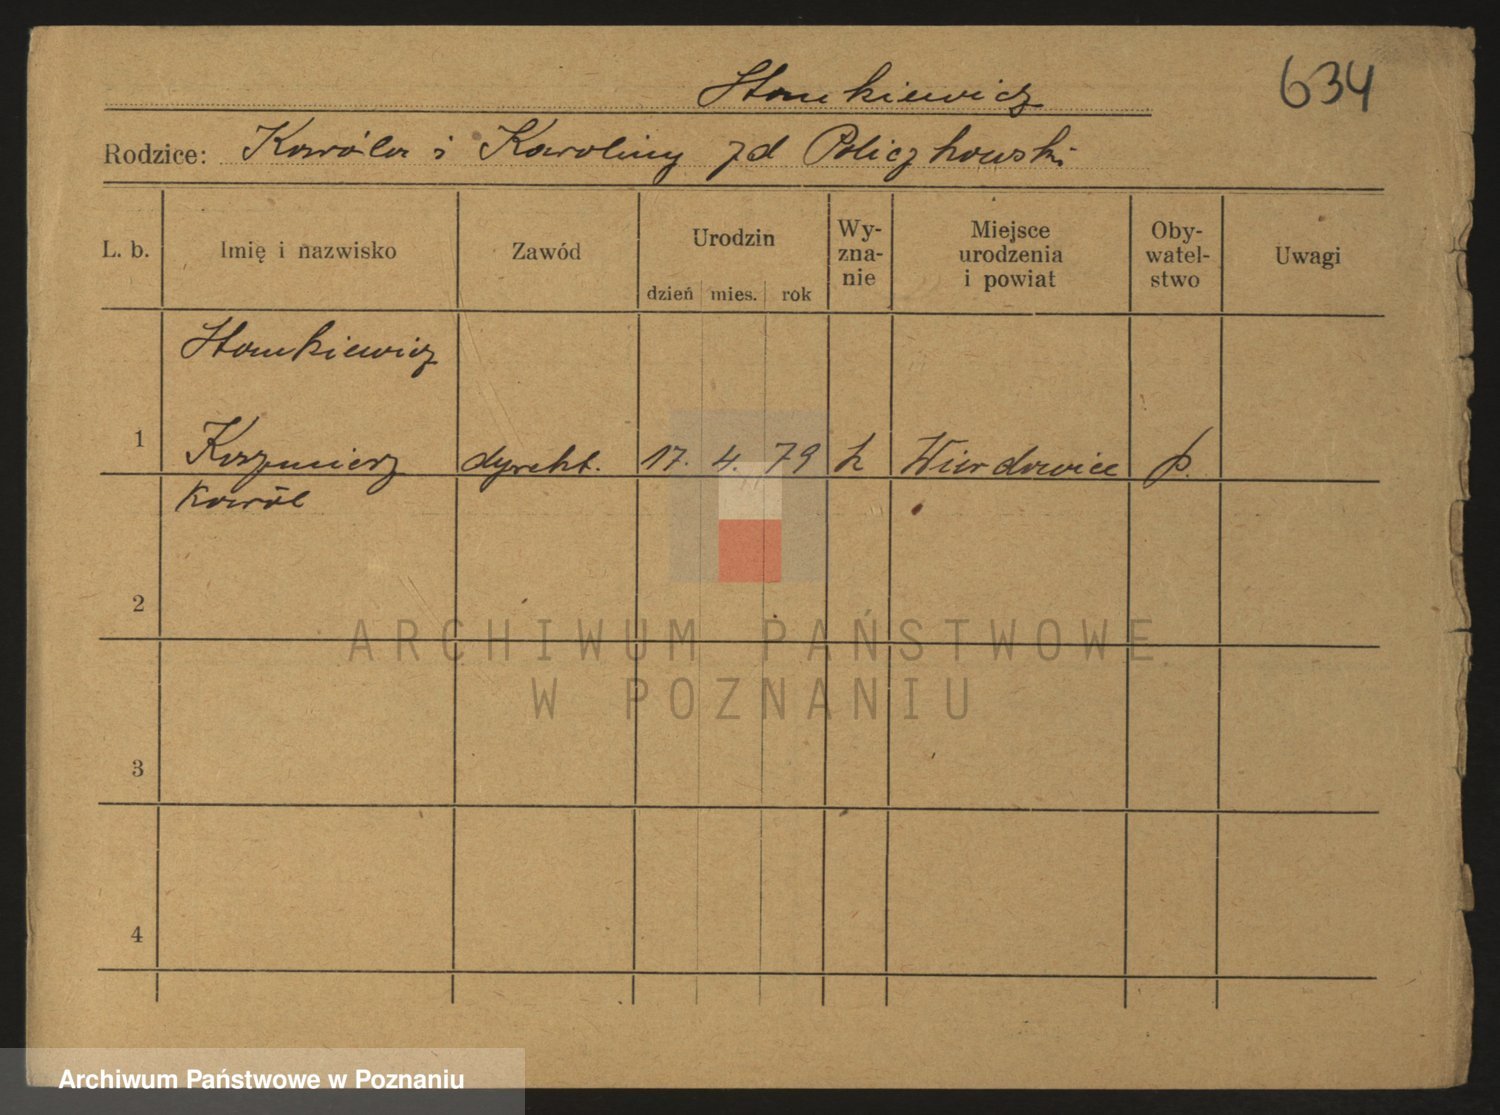 634
Stankiewicz
Rodzice: Karóla i Karoliny zd Policzkowski
L. b. Imię i nazwisko Zawód Urodzin dzień mies. rok Wy-zna-nie Miejsce urodzenia i powiat Oby-watel-stwo Uwagi
Stankiewicz
1 Kazimierz dyrekt. 17. 4. 79 k p.
Karól
2
ARCHIWUM PAŃSTWOWE
W POZNANIU
3
4
Archiwum Państwowe w Poznaniu